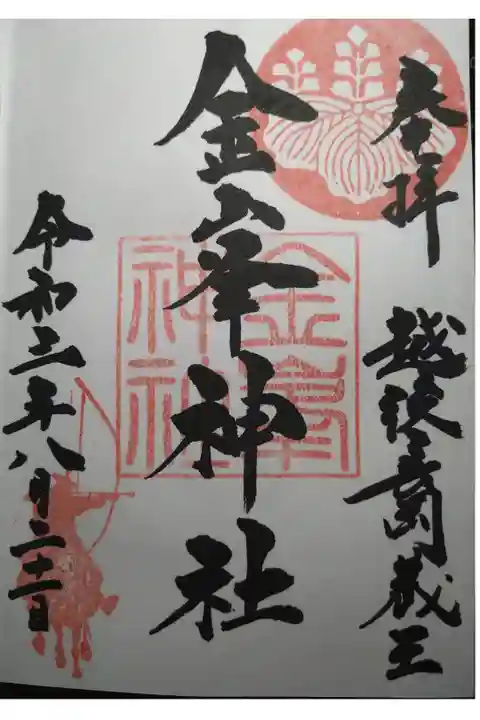 奉拝
越後
蔵王
金峯神社
金峯
神社
令和三年八月二十一日